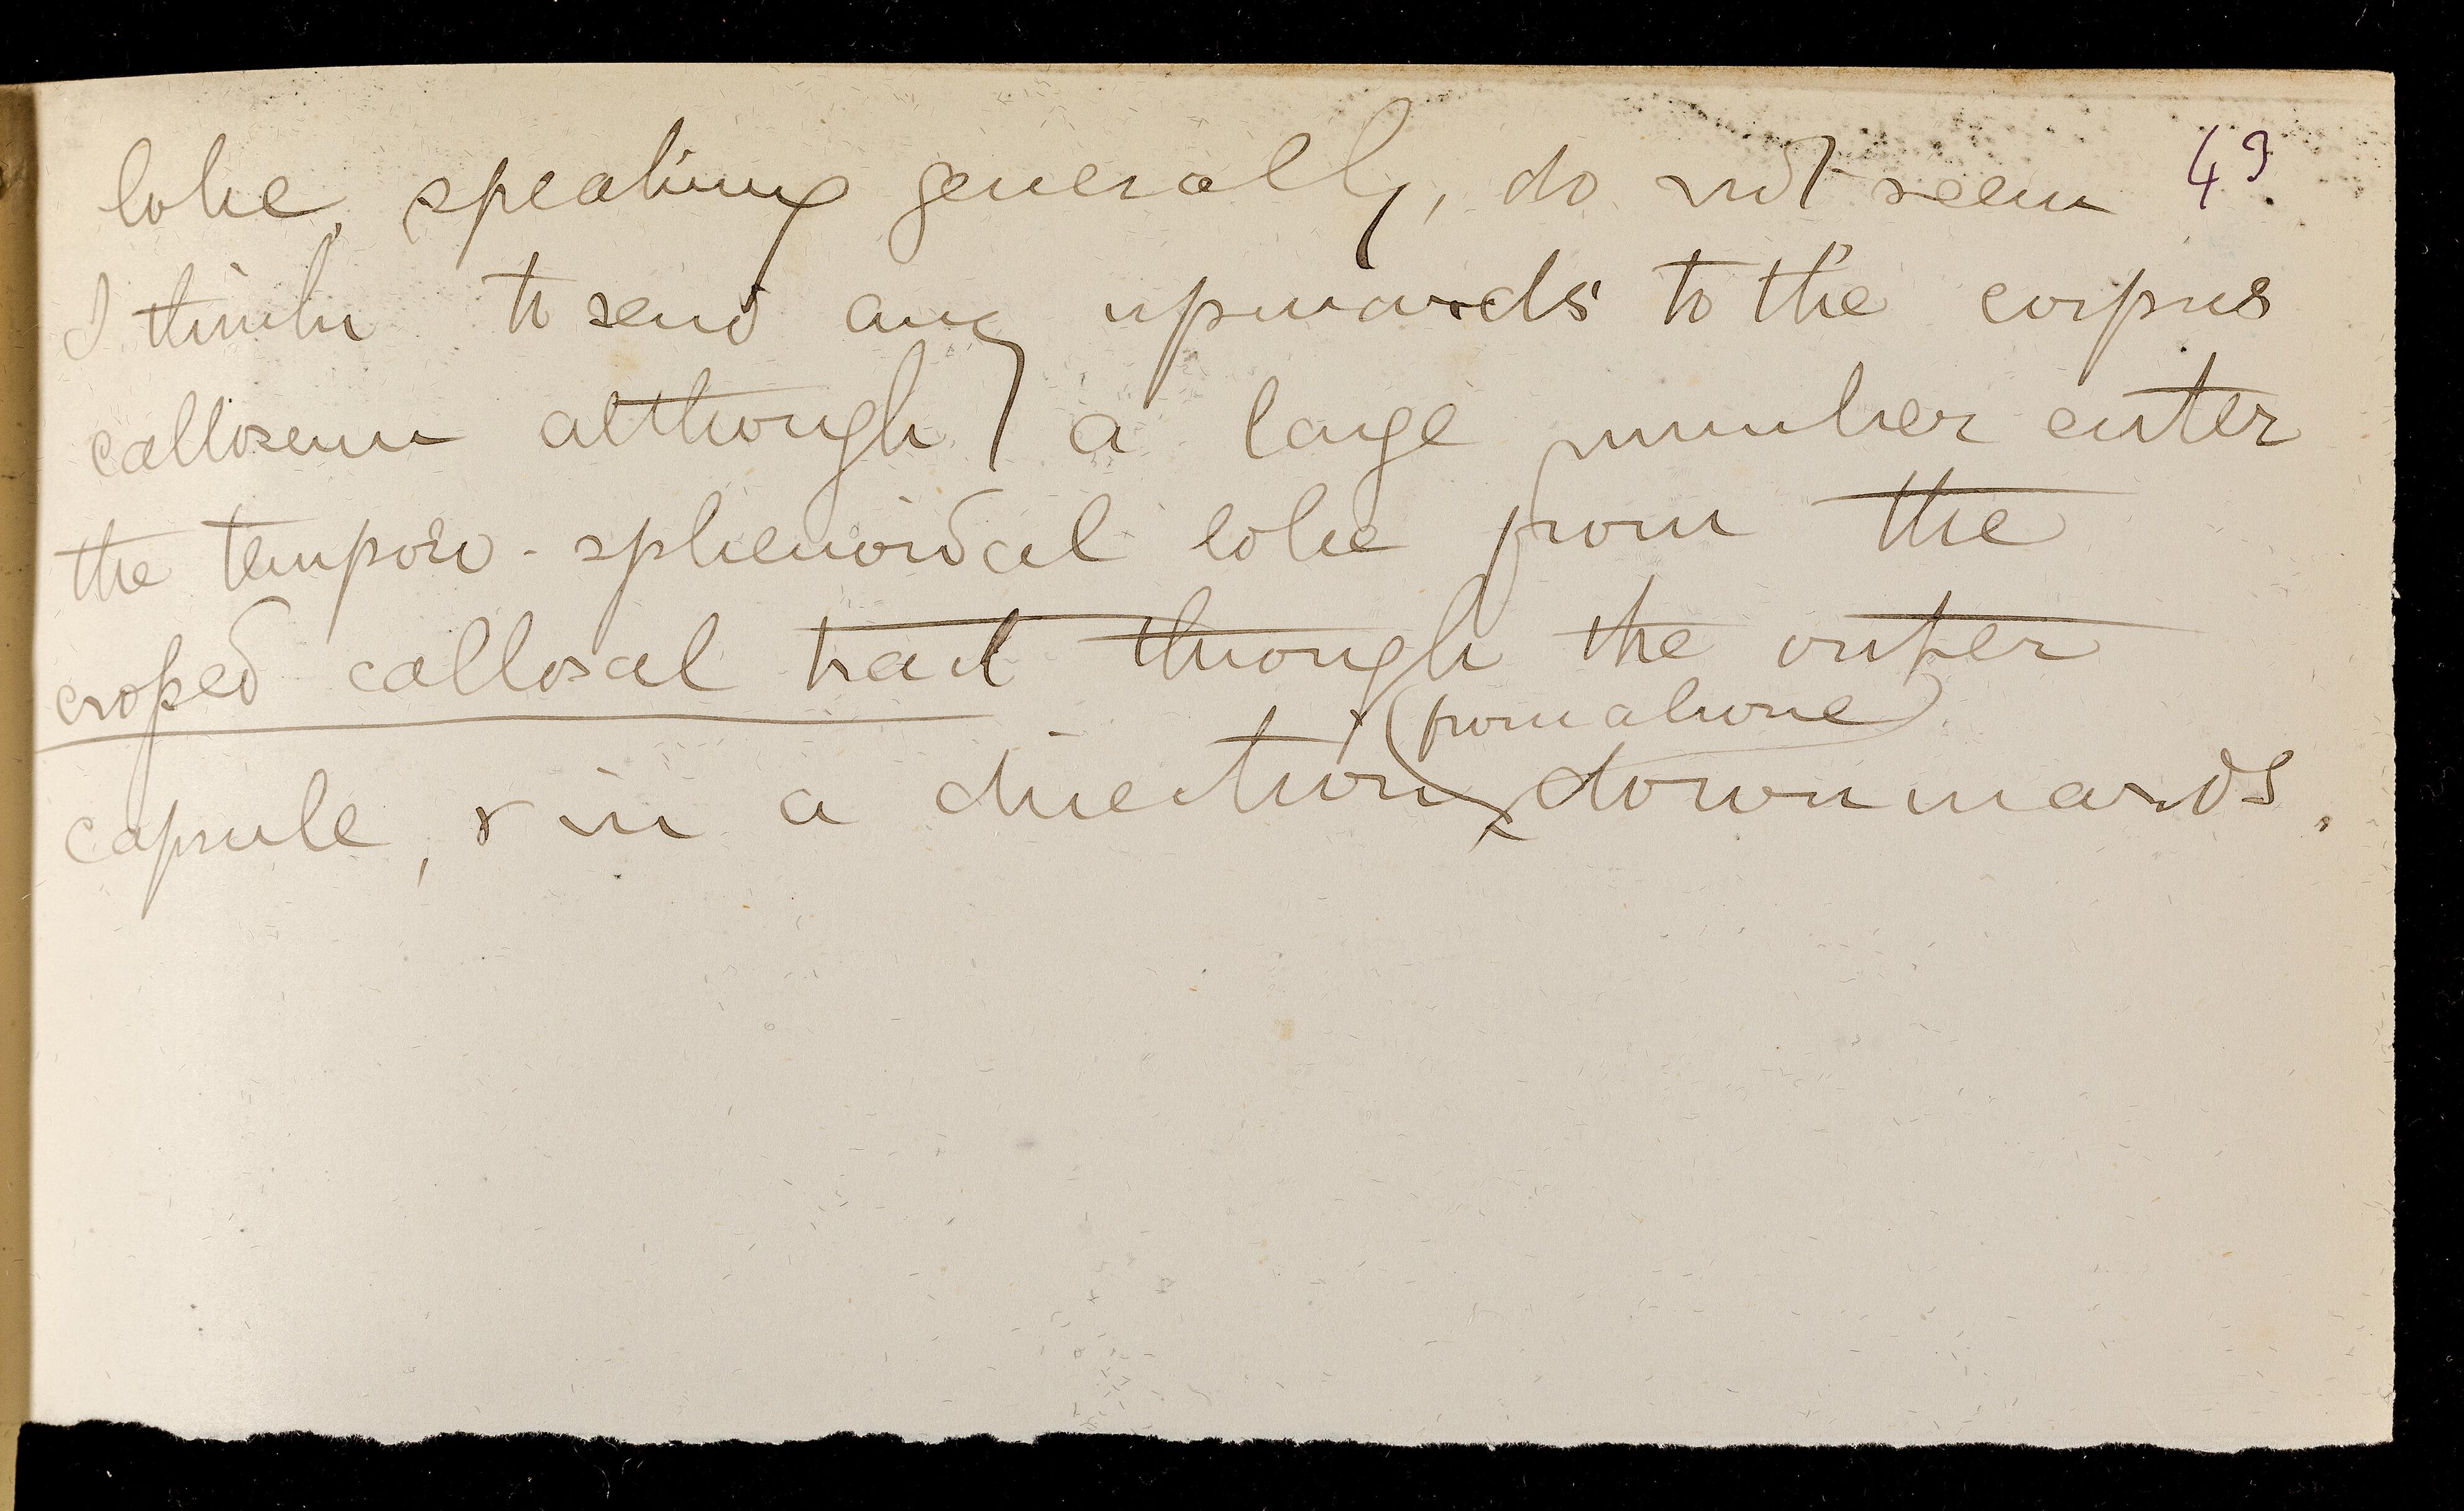 lobe, speaking generally, do not seem 49.
I think to send any upwards to the corpus
callosum although a large number enter
the temporo-sphenoidal lobe from the
crossed callosal tract through the outer
(from above)
capsule, & in a direction downwards.